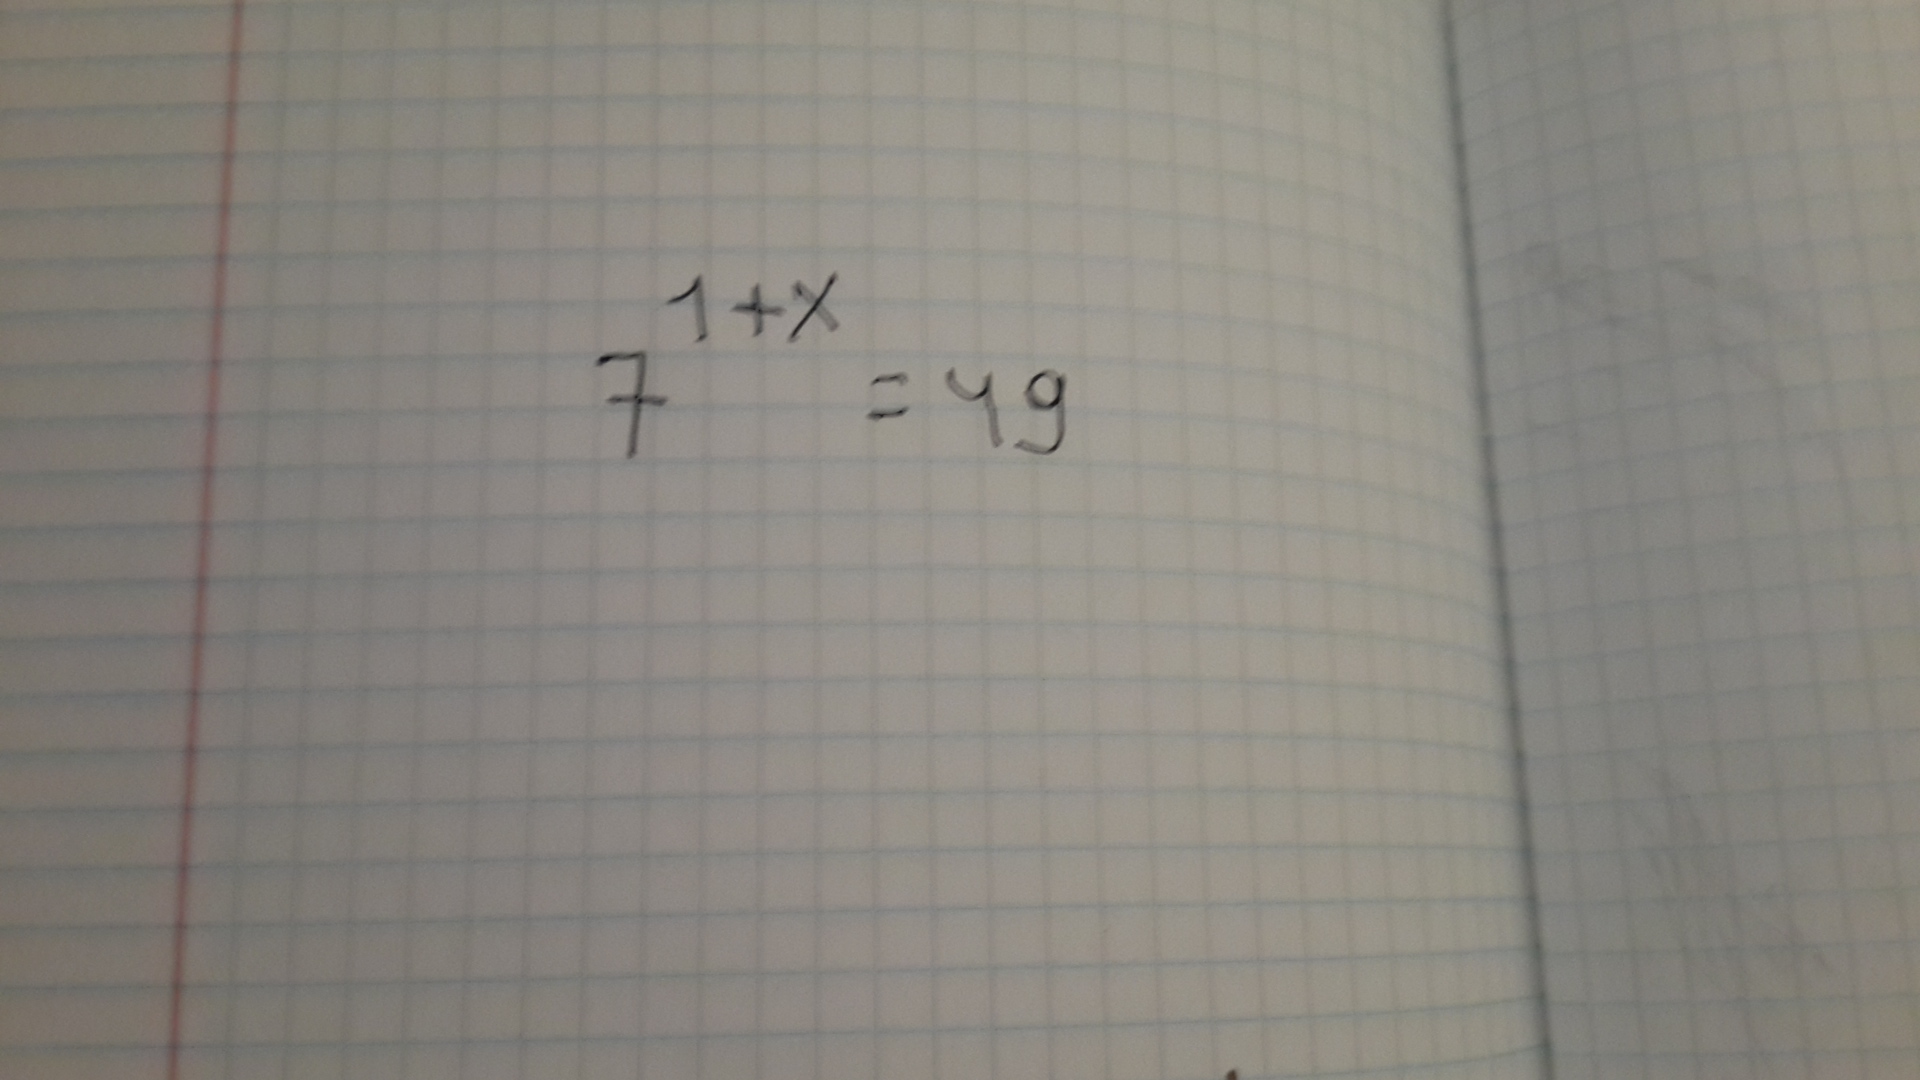 7^{1+x} = 49